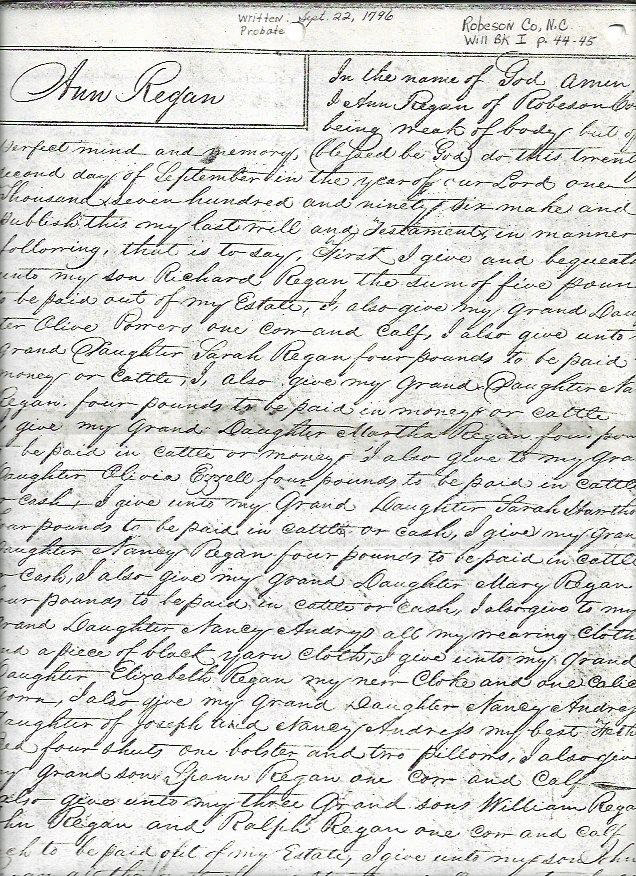 Written Sept. 22, 1796
Probate
Robeson Co, N.C.
Will Bk I p. 44-45
Ann Regan
In the name of God amen
I Ann Regan of Robeson Co
being weak of body but of
perfect mind and memory, blessed be God do this twent
second day of September in the year of our Lord one
thousand seven hundred and ninety six make and
publish this my last will and Testament, in manner
following, that is to say, First I give and bequeat
unto my son Richard Regan the sum of five poun
to be paid out of my Estate, I, also give my Grand Dau
ter Olive Powers one cow and calf, I also give unto
Grand Daughter Sarah Regan four pounds to be paid
money or Cattle, I, also give my Grand Daughter Na
Regan four pounds to be paid in money or cattle
I give my Grand Daughter Martha Regan four pou
be paid in cattle or money I also give to my Gra
Daughter Olivia Ezzell four pounds to be paid in cattle
r cash, I give unto my Grand Daughter Sarah
our pounds to be paid in cattle or cash, I give my Gran
Daughter Nancy Regan four pounds to be paid in cattle
r cash, I also give my Grand Daughter Mary Regan
our pounds to be paid in cattle or cash, I also give to my
Grand Daughter Nancy Andress all my wearing Cloth
and a piece of black yarn Cloth, I give unto my Grand
Daughter Elizabeth Regan my new Cloke and one Calic
Gown, I also give my Grand Daughter Nancy Andres
Daughter of Joseph and Nancy Andress my best Feath
Bed four sheets one bolster and two pillows, I also give
my Grand son Regan one cow and calf
also give unto my three Grand sons William Rega
hn Regan and Ralph Regan one cow and calf
ch to be paid out of my Estate, I give unto my son John